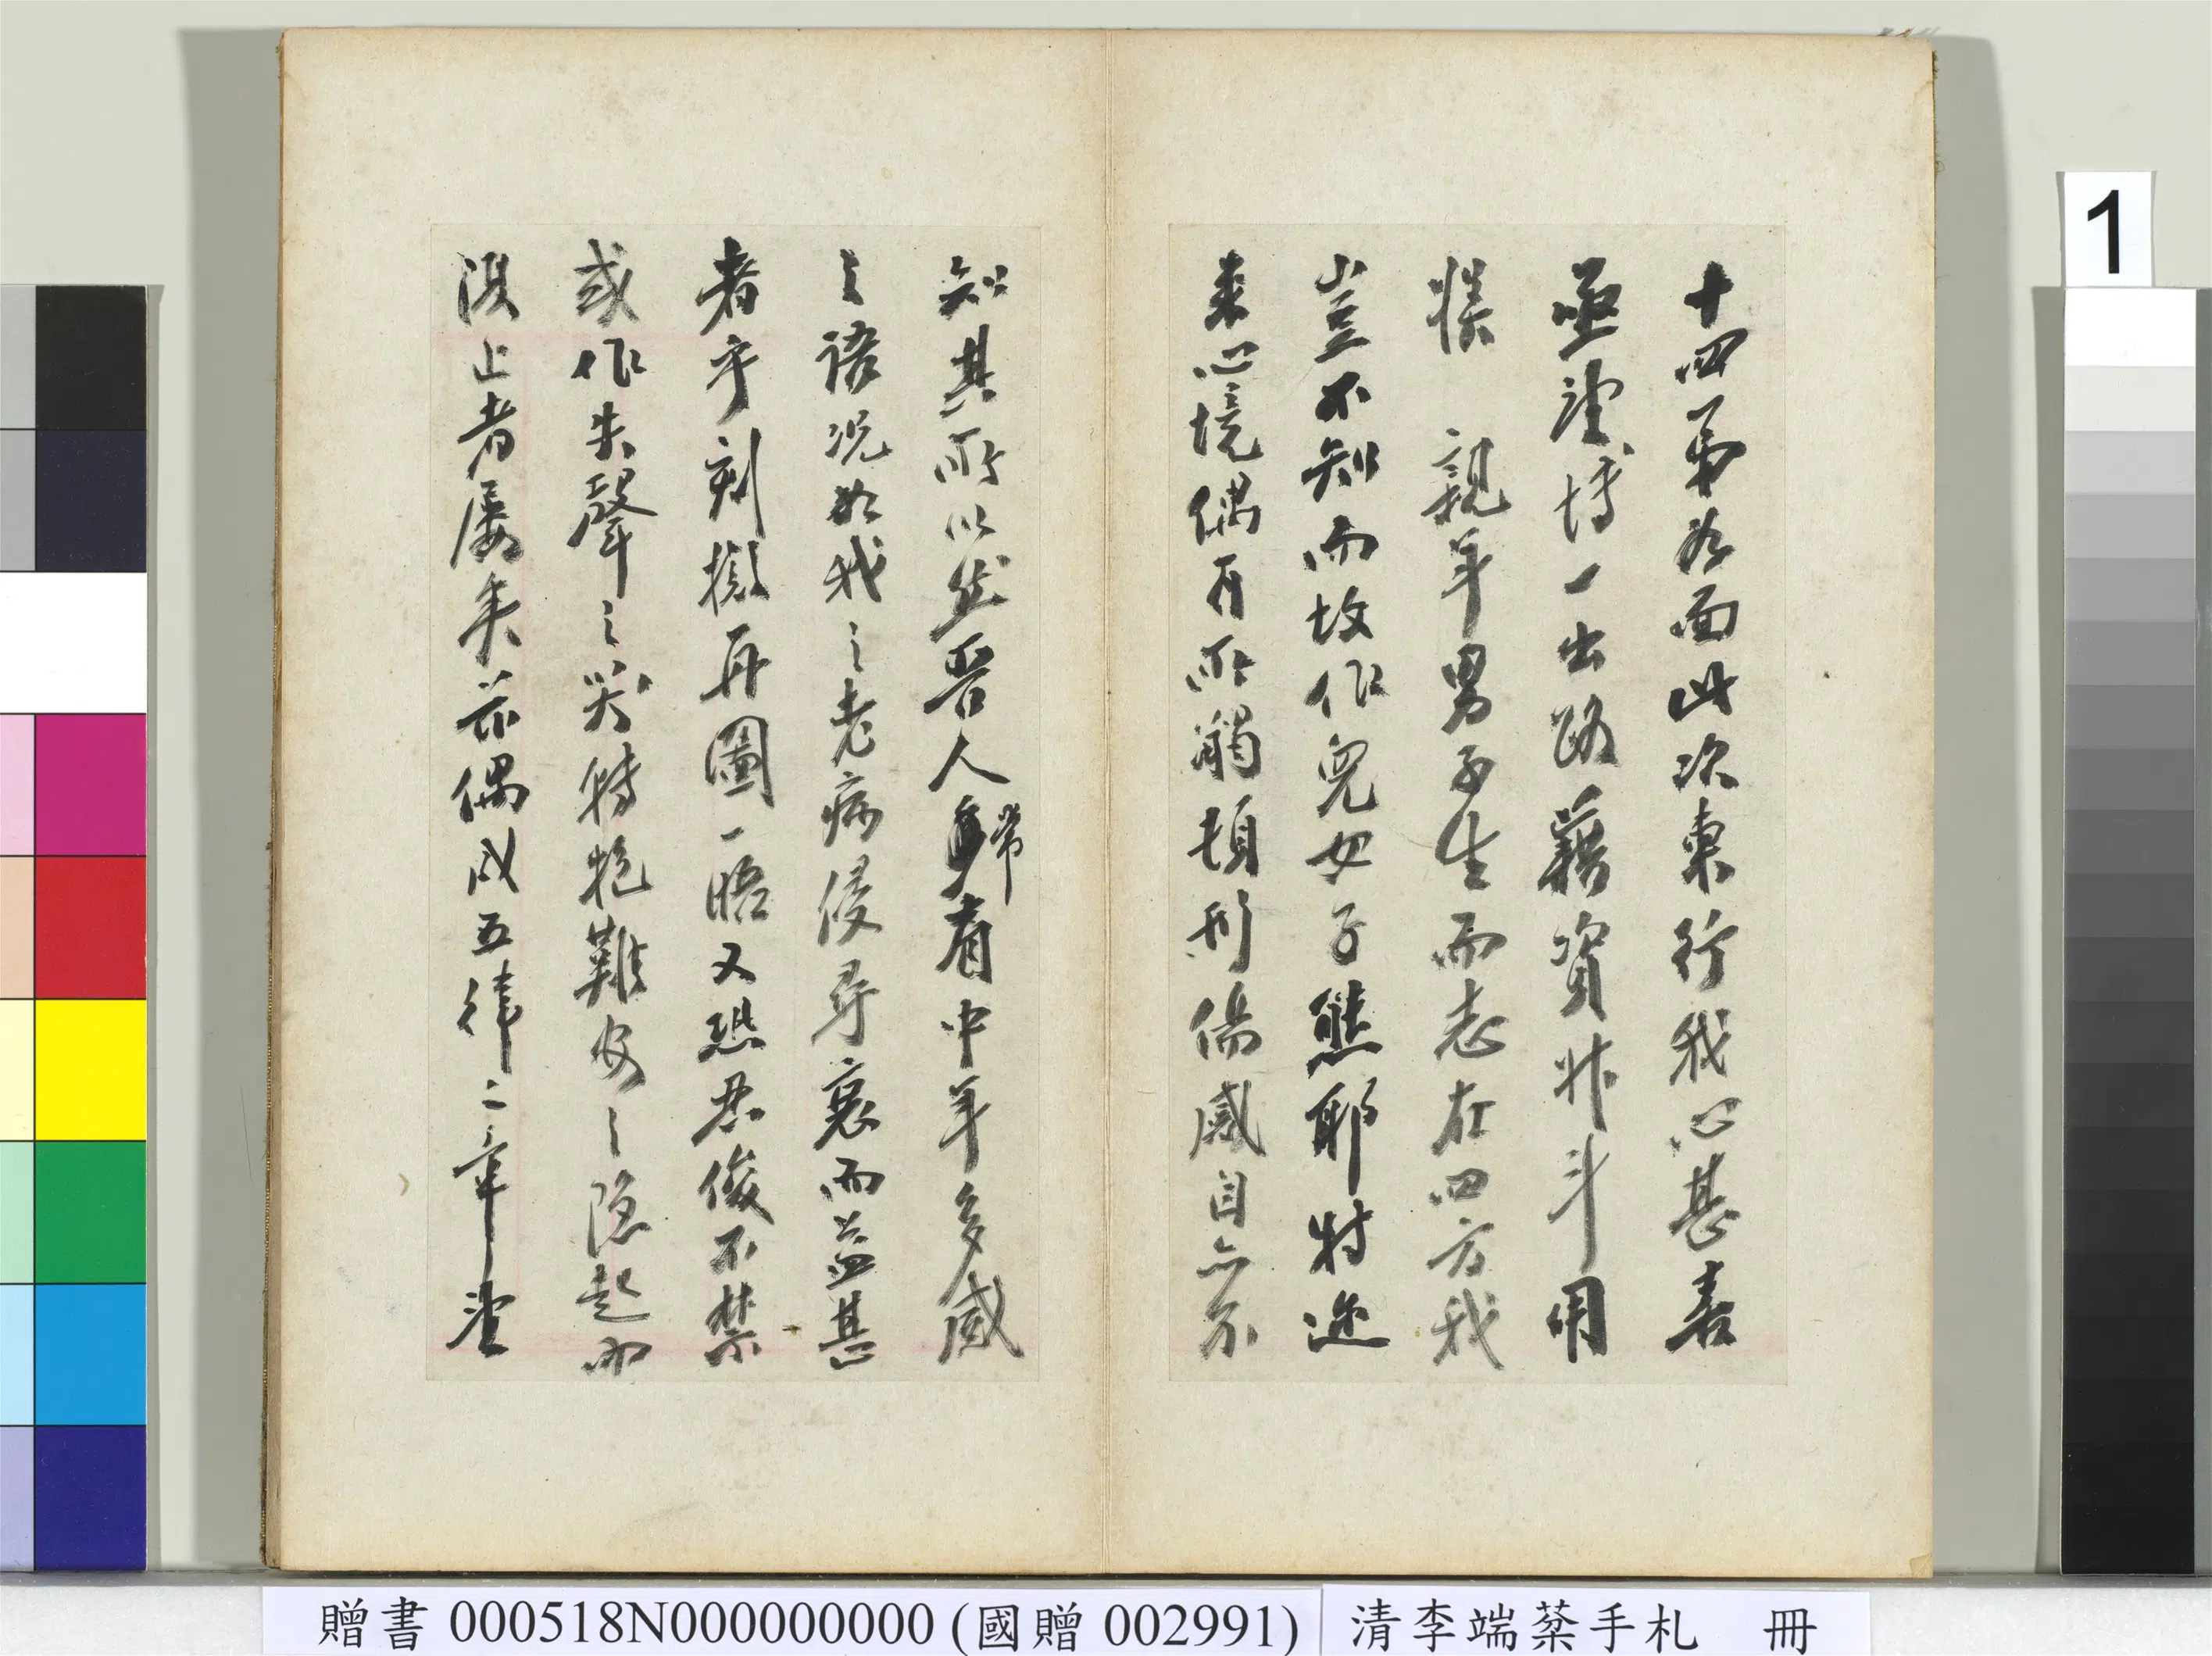 十四弟如面此次東行我心甚喜
亟望博一出路藉資升斗用
娛　親年男子生而志在四方我
豈不知而故作兒女子態耶特邇
來心境偶有所觸頓形傷感自亦不
知其所以然晉人常有中年多感
之語況如我之老病侵尋衰而益甚
者乎刻擬再圖一晤又恐忍俊不禁
或作失聲之哭特抱難安之隱起而
復止者屢矣茲偶成五律二章望
1
贈書 000518N000000000 (國贈 002991)
清李端棻手札　冊